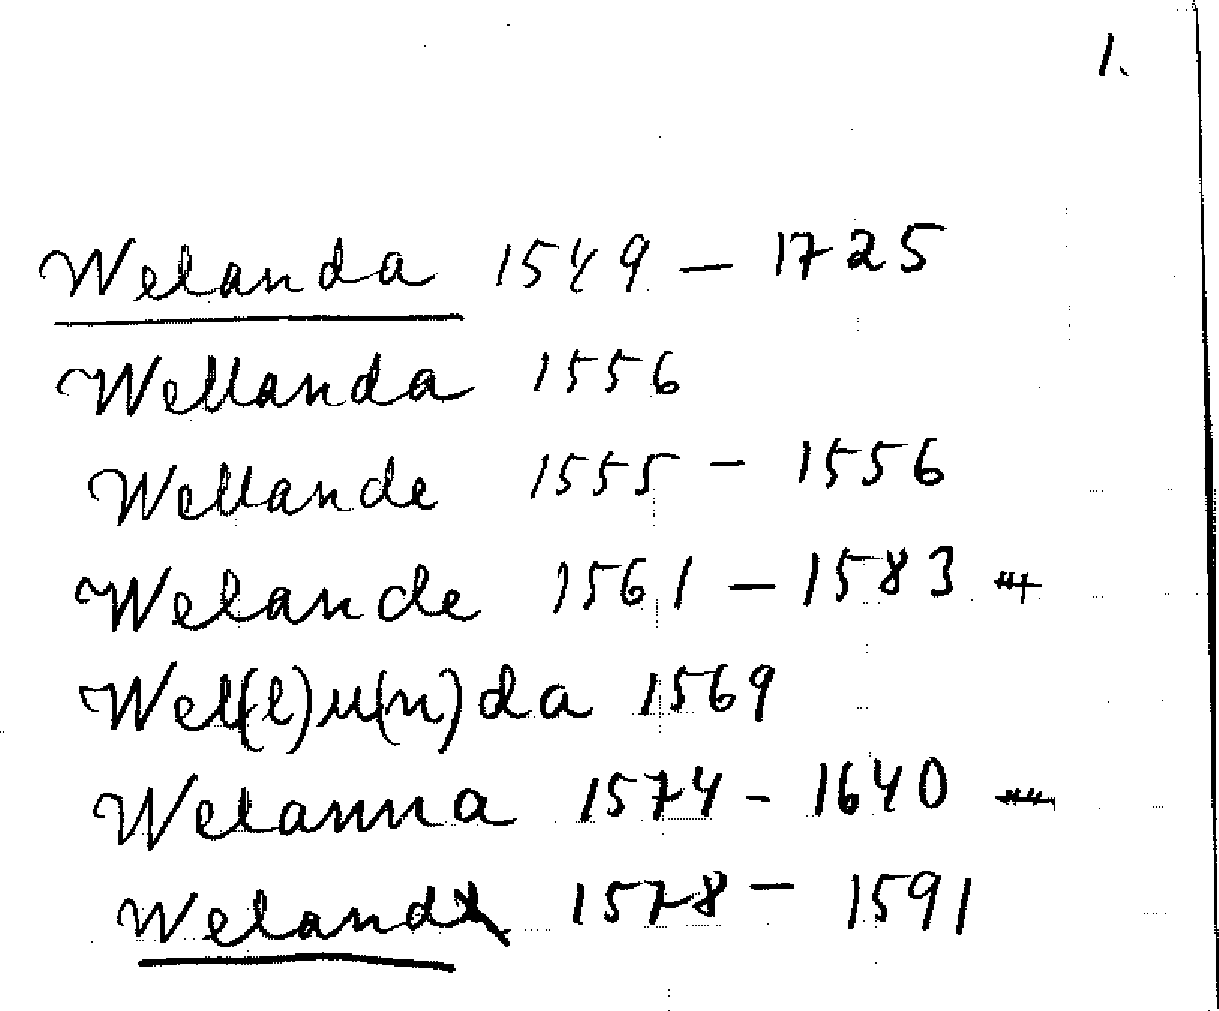 1.
Welanda 1549 – 1725
Wellanda 1556
Wellande 1555 – 1556
Welande 1561 – 1583
Wel(l)u(n)da 1569
Welanna 1574 - 1640
Weland 1578 – 1591